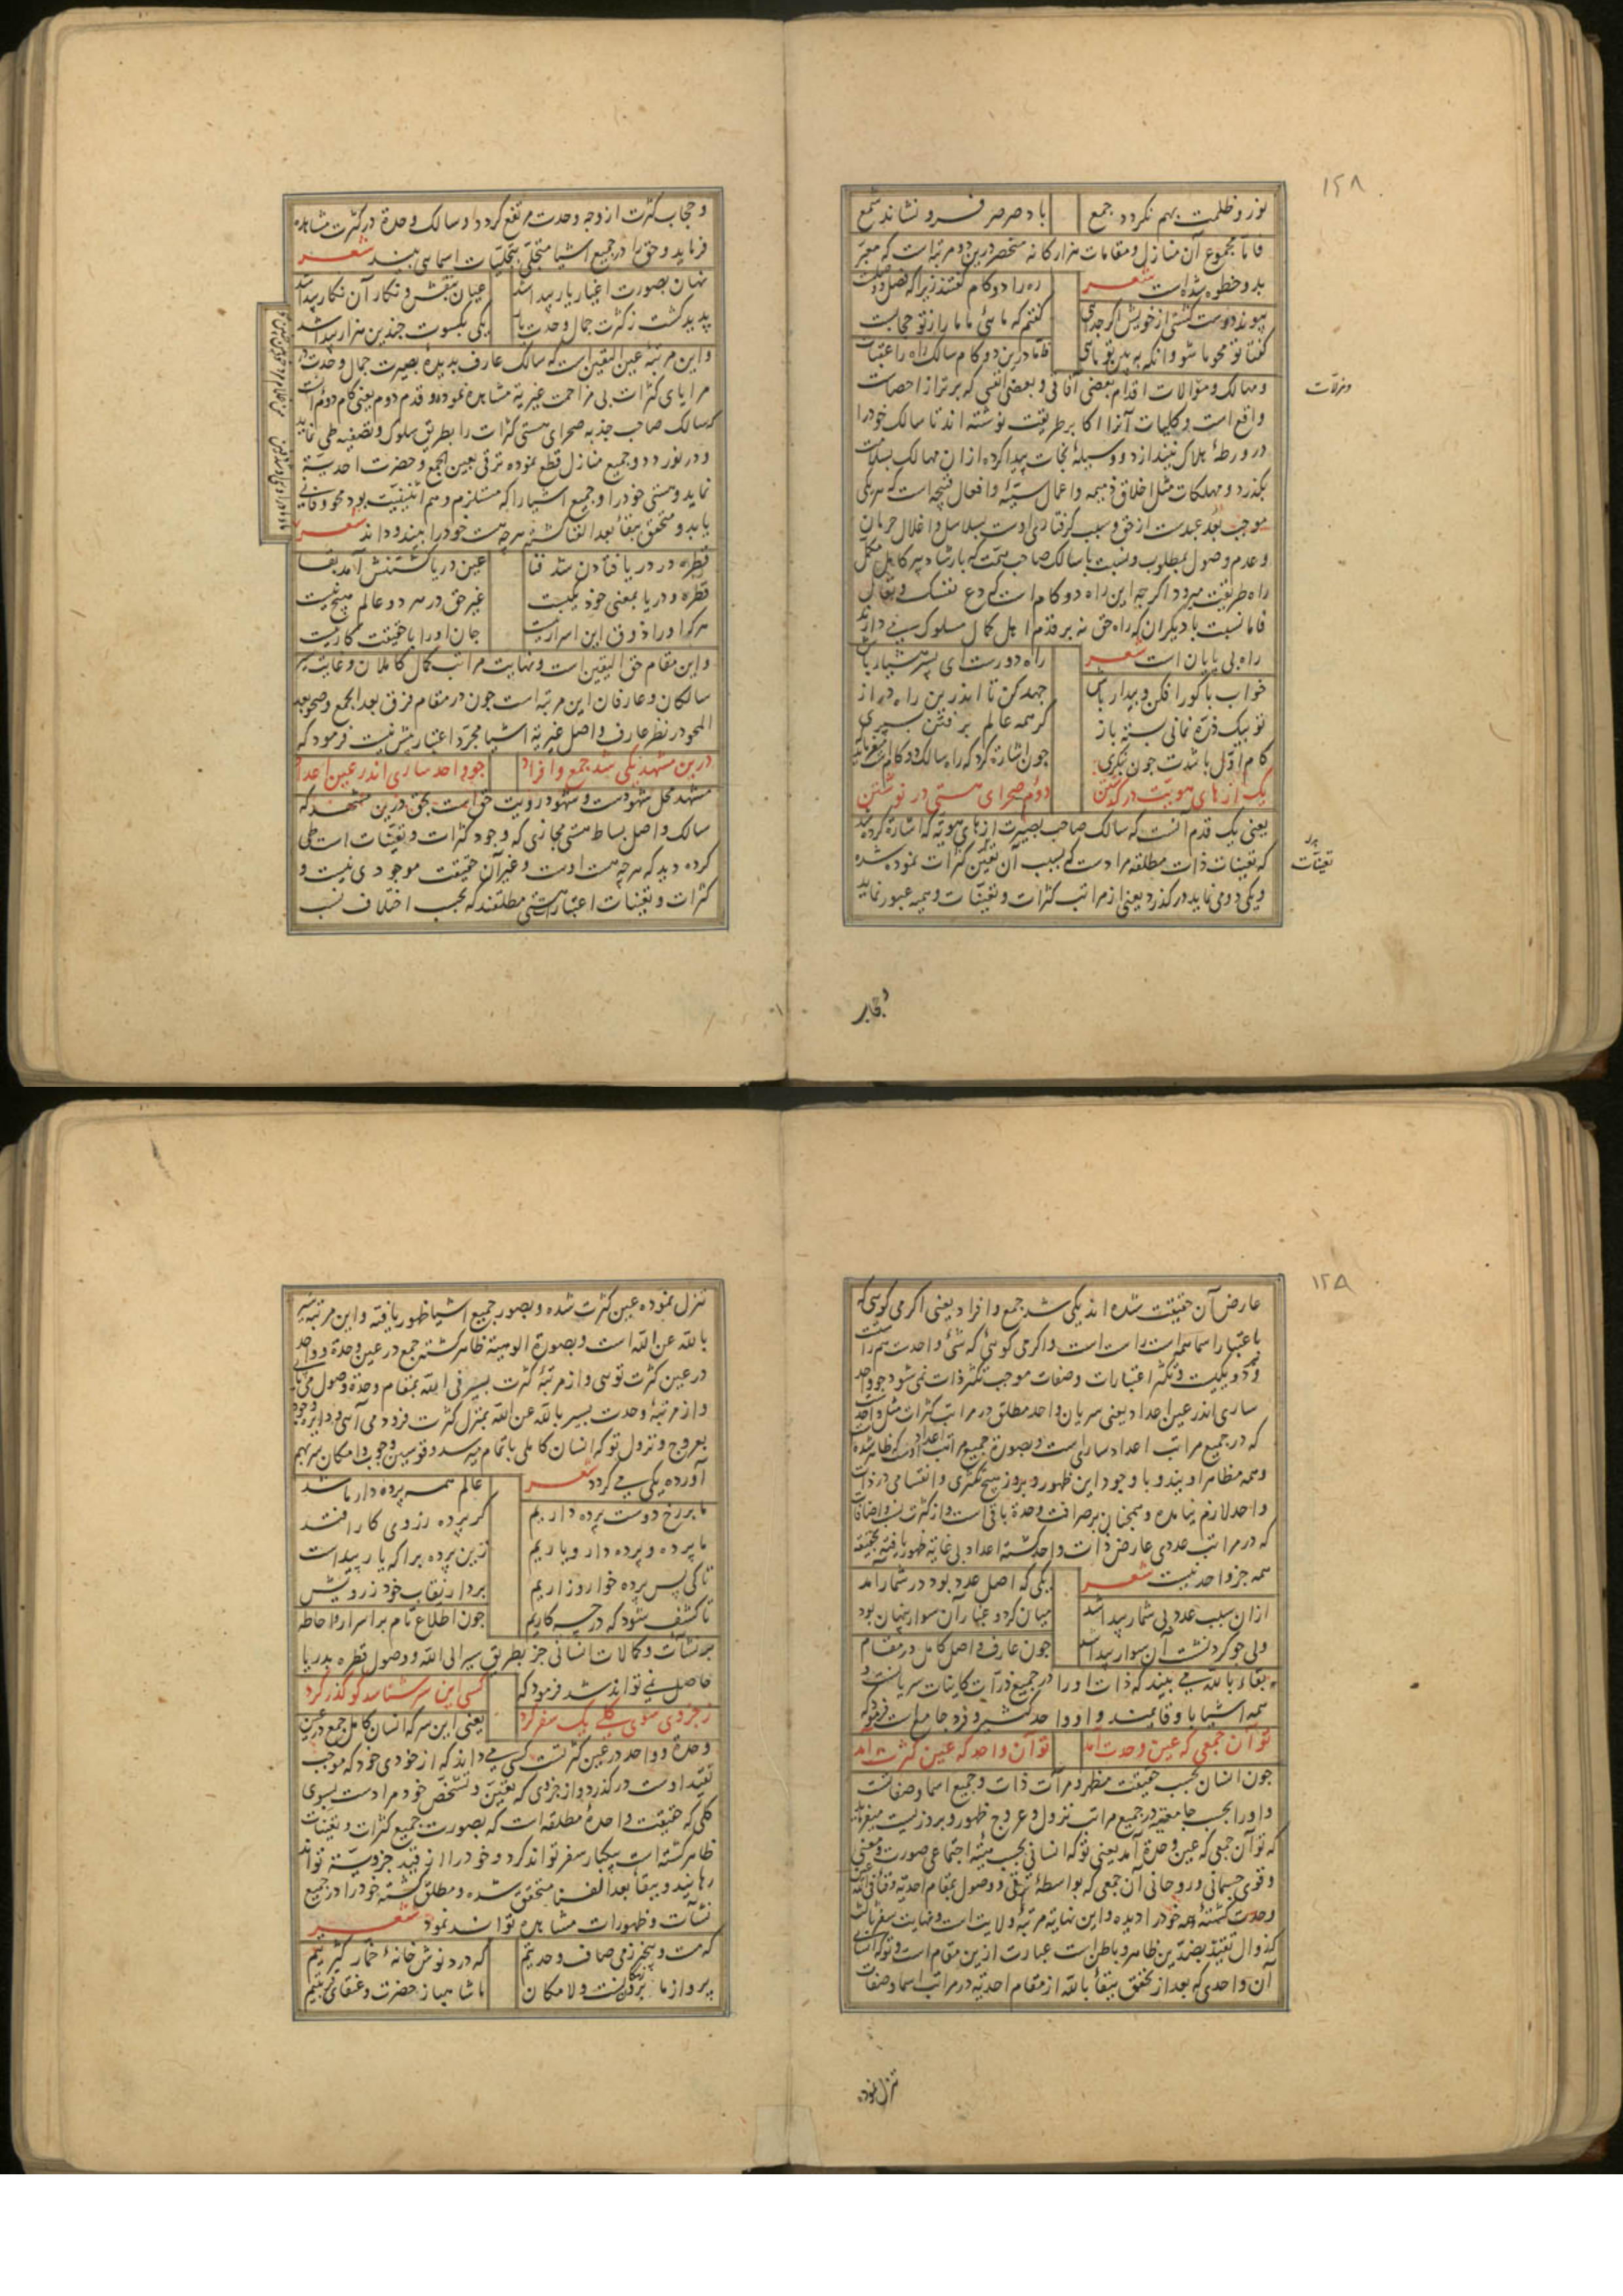 ۱۲۸
نور و ظلمت بهم نکردد جمع باد صرصر فرو نشاند شمع
فاما مجموع آن منازل و مقامات هزارکانه منحصر درین دو مرتبه است که معبر
بدو خطوه شده است شعر ره را دو کام گفتند زیرا که فصل و وصلت
پیوند دوست گشتی از خویش اگر جدایی گفتم که مائی ما ما را ز تو حجابست
گفتا تو محو ما شو وانگه ببین تو مایی فاما درین دو کام سالک راه را عقبات
و مهالک و مزالات اقدام بعضی آفاقی و بعضی انفسی که برتر از احصاست
واقع است و کلیات آنرا اکابر طریقت نوشته اند تا سالک خود را
در ورطهٔ هلاک نیندازد و وسیلهٔ نجات پیدا کرده از ان مهالک بسلامت
بگذرد و مهلکات مثل اخلاق ذمیمه و اعمال سیئه و افعال قبیحه است که هر یکی
موجب بُعد عبد است از حق و سبب گرفتاری اوست بسلاسل و اغلال حرمان
و عدم وصول بمطلوب و نسبت با سالک صاحب همت که بارشاد پیر کامل مکمل
راه طریقت میرود اگر چه این راه دو کام است که دع نفسک و تعال
فاما نسبت با دیگران که راه حق نه بر قدم اهل کمال سلوک می دارند
راه بی پایان است شعر راه دورست ای پسر هشیار باش
خواب با کور افکن و بیدار باش جهد کن تا اندرین راه دراز
تو بیک ذره نمانی بسته باز گر همه عالم بر فتن بسپری
کام اولی باشدت چون بنگری چون اشارة کرد که راه سالک دو کام است میفرماید
یک از های هویت در گذشتن دوم صحرای هستی در نوشتن
یعنی یک قدم آنست که سالک صاحب بصیرت از های هویه که اشارة کرده شد
که تعینات ذات مطلقه مراد است که بسبب آن تعین کثرات نموده شده
و یکی دو می نماید در گذرد یعنی از مراتب کثرات و تعینات وهمیه عبور نماید
ومزلات
تعینات
و حجاب کثرت از وجه وحدت مرتفع گردد و سالک وحدة در کثرت مشاهده
فرماید و حق را در جمیع اشیا متجلی بتجلیات اسمایی بیند شعر
نهان بصورت اغیار یار پیدا شد عیان بنقش و نگار آن نگار پیدا شد
پدید گشت ز کثرت جمال وحدت ما یکی بکسوت چندین هزار پیدا شد
و این مرتبهٔ عین الیقین است که سالک عارف بدیدهٔ بصیرت جمال وحدت در
مرایای کثرات بی مزاحمت غیریة مشاهده نموده و قدم دوم یعنی کام دوم آنست
که سالک صاحب جذبه صحرای هستی کثرات را بطریق سلوک و تصفیه طی نماید
و در نوردد و جمیع منازل قطع نموده ترقی بعین الجمع و حضرت احدیة
نماید و هستی خود را و جمیع اشیا را که مستلزم وهم اثنینیت بود محو و فانی
یابد و متحقق ببقاء بعد الفنا گشته هر چه هست خود را بیند و داند شعر
قطره در دریا فتادن شد فنا عین دریا گشتنش آمد بقا
قطره و دریا بمعنی خود یکیست غیر حق در هر دو عالم هیچ نیست
هر که او را ذوق این اسرار نیست جان او را با حقیقت کار نیست
و این مقام حق الیقین است و نهایت مراتب کمال کاملان و غایت سیر
سالکان و عارفان این مرتبه است چون در مقام فرق بعد الجمع و صحو بعد
المحو در نظر عارف واصل غیریة اشیا مجرد اعتبار بیش نیست فرمود که
درین مشهد یکی شد جمع و افراد چو واحد ساری اندر عین اعداد
مشهد محل شهود است و شهود رویت حق است بحق درین مشهد که
سالک واصل بساط هستی مجازی که وجود کثرات و تعینات است طی
کرده دید که هر چه هست اوست و غیر آن حقیقت موجودی نیست و
کثرات و تعینات اعتبارات هستی مطلقند که بحسب اختلاف نسب
۱۲۹
عارض آن حقیقت شده اند یکی شد جمع و افراد یعنی اگر می گویی که
باعتبار اسما همه است راست است و اگر می گوئی که شیٔ واحدست هم راست
و دو یکیست و تکثر اعتبارات و صفات موجب تکثر ذات نمی شود چو واحد
ساری اندر عین اعداد یعنی سریان واحد مطلق در مراتب کثرات مثل واحد است
که در جمیع مراتب اعداد ساریست و بصورة جمیع مراتب اعداد اوست که ظاهر شده
و همه مظاهر اویند و با وجود این ظهور و بروز هیچ تکثری و انقسامی در ذات
واحد لازم نیامده و همچنان بر صرافت وحدة باقی است و از کثرت نسب و اضافات
که در مراتب عددی عارض ذات واحد گشته اعداد بی غایة ظهور یافته بحقیقه
همه جز واحد نیست شعر یکی که اصل عدد بود در شمار آمد
ازان سبب عدد بی شمار پیدا شد میان گرد و غبار آن سوار پنهان بود
ولی چو گرد نشست آن سوار پیدا شد چون عارف واصل کامل در مقام
بقاء بالله می بیند که ذات او را در جمیع ذرات کاینات سریانست و
همه اشیا با و قایمند و او واحد کثیر و فرد جامع است فرمود که
تو آن جمعی که عین وحدت آمد تو آن واحد که عین کثرت آمد
چون انسان بحسب حقیقت مظهر و مرآت ذات و جمیع اسما و صفاتست
و او را بحسب جامعیة در جمیع مراتب نزول و عروج ظهور و بروزیست میفرماید
که تو آن جمعی که عین وحدة آمد یعنی تو که انسانی بحسب هیئة اجتماعی صورت و معنی
و قوی جسمانی و روحانی آن جمعی که بواسطهٔ ترقی و وصول بمقام احدیة و فنا فی الله عین
وحدت گشته و همه خود را دیده و این نهایة مرتبهٔ ولایت است و نهایت سفر ثالث
که زوال تقید بضدین ظاهر و باطن است عبارت ازین مقام است و تو که انسانی
آن واحدی که بعد از تحقق ببقاء بالله از مقام احدیة در مراتب اسما و صفات
تنزل نموده
تنزل نموده عین کثرت شده و بصور جمیع اشیا ظهور یافته و این مرتبه سیر
بالله عن الله است و بصورة الوهیة ظاهر گشته جمع در عین وحدة و واحد
در عین کثرت تویی و از مرتبهٔ کثرت بسیر فی الله بمقام وحدة وصول می یابی
و از مرتبهٔ وحدت بسیر بالله عن الله بمنزل کثرت فرود می آیی و دایره وجود
بعروج و نزول تو که انسان کاملی باتمام میرسد و قوسین وجوب و امکان سر بهم
آورده یکی می گردد شعر عالم همه پرده دار ما شد
ما بر رخ دوست پرده داریم گر پرده ز روی کار افتد
ما پرده و پرده دار و یاریم زین پرده برا که یار پیداست
تا کی پس پرده خوار و زاریم بردار نقاب خود ز رویش
تا کشف شود که در چه کاریم چون اطلاع تام بر اسرار و احاطه
بر نشآت و کمالات انسانی جز بطریق سیر الی الله و وصول قطره بدریا
حاصل نمی تواند شد فرمود که کسی این سر شناسد کو گذر کرد
ز جزوی سوی کلی یک سفر کرد یعنی این سر که انسان کامل جمع در عین
وحدة و واحد در عین کثرتست کسی می داند که از خودی خود که موجب
تقید اوست در گذرد و از جزوی که تعین و تشخص خود مراد است بسوی
کلی که حقیقت واحدهٔ مطلقه است که بصورت جمیع کثرات و تعینات
ظاهر گشته است بیکبار سفر تواند کرد و خود را از قید جزویة تواند
رهانید و ببقا بعد الفنا متحقق شده و مطلق گشته خود را در جمیع
نشآت و ظهورات مشاهده تواند نمود شعر
که مست و بیخبر ز می صاف وحدتیم که درد نوش خانهٔ خمار کثرتیم
پرواز ما برون مکانست و لامکان ما شاهباز حضرت و عنقای قربتیم